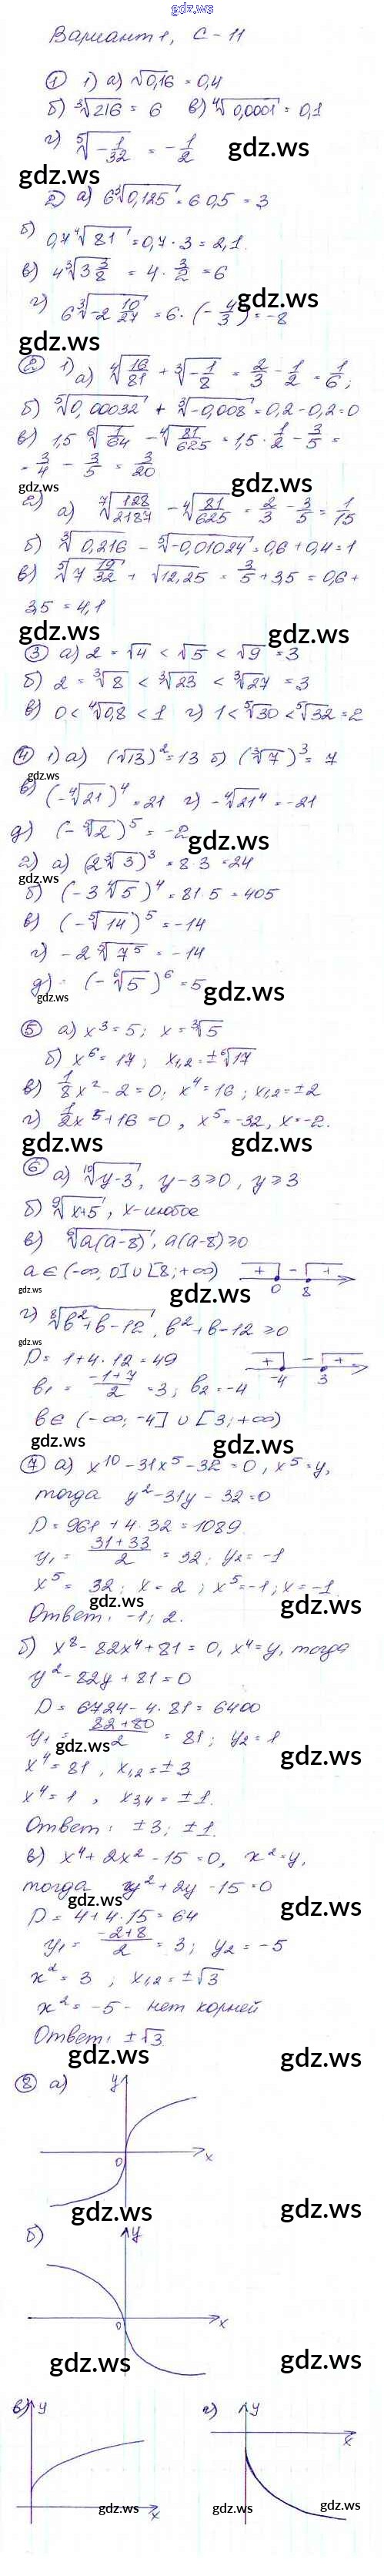 gdz.ws
Вариант 1, С-11
① 1) а) √0,16 = 0,4
б) ³√216 = 6 в) ⁴√0,0001 = 0,1
г) ⁵√-1/32 = -1/2 gdz.ws
gdz.ws
2) а) 6³√0,125 = 6·0,5 = 3
б) 0,7⁴√81 = 0,7·3 = 2,1.
в) 4³√3 3/8 = 4·3/2 = 6
г) 6³√-2 10/27 = 6·(-4/3) = -8
gdz.ws
gdz.ws
② 1) а) ⁴√16/81 + ³√-1/8 = 2/3 - 1/2 = 1/6;
б) ⁵√0,00032 + ³√-0,008 = 0,2-0,2=0
в) 1,5 ⁶√1/64 - ⁴√81/625 = 1,5·1/2 - 3/5 =
= 3/4 - 3/5 = 3/20
gdz.ws gdz.ws
2) а) ⁷√128/2187 - ⁴√81/625 = 2/3 - 3/5 = 1/15
б) ³√0,216 - ⁵√-0,01024 = 0,6+0,4=1
в) ⁵√7 19/32 + √12,25 = 3/5 + 3,5 = 0,6+
3,5 = 4,1
gdz.ws gdz.ws
③ а) 2 = √4 < √5 < √9 = 3
б) 2 = ³√8 < ³√23 < ³√27 = 3
в) 0 < ⁴√0,8 < 1 г) 1 < ⁵√30 < ⁵√32 = 2
④ 1) а) (√13)² = 13 б) (³√7)³ = 7
gdz.ws
в) (-⁴√21)⁴ = 21 г) -⁴√21⁴ = -21
д) (-⁵√2)⁵ = -2
gdz.ws
2) а) (2³√3)³ = 8·3 = 24
gdz.ws
б) (-3⁴√5)⁴ = 81·5 = 405
в) (-⁵√14)⁵ = -14
г) -2⁵√7⁵ = -14
д) (-⁶√5)⁶ = 5
gdz.ws gdz.ws
⑤ а) x³ = 5; x = ³√5
б) x⁶ = 17; x₁,₂ = ±⁶√17
в) 1/8 x² - 2 = 0; x⁴ = 16; x₁,₂ = ±2
г) 1/2 x⁵ + 16 = 0, x⁵ = -32, x = -2.
gdz.ws gdz.ws
⑥ а) ¹⁰√y-3, y-3≥0, y≥3
б) ⁹√x+5, x-любое
в) ⁶√a(a-8), a(a-8)≥0
a∈(-∞, 0]∪[8; +∞) + - +
0 8
gdz.ws gdz.ws
г) ⁸√b²+b-12, b²+b-12≥0
gdz.ws
D = 1+4·12 = 49 + - +
-4 3
b₁ = -1+7/2 = 3; b₂ = -4
b∈(-∞, -4]∪[3; +∞)
gdz.ws gdz.ws
⑦ а) x¹⁰ - 31x⁵ - 32 = 0, x⁵ = y,
тогда y² - 31y - 32 = 0
D = 961 + 4·32 = 1089
y₁ = 31+33/2 = 32; y₂ = -1
x⁵ = 32; x = 2; x⁵ = -1; x = -1.
gdz.ws gdz.ws
Ответ: -1; 2.
б) x⁸ - 82x⁴ + 81 = 0, x⁴ = y, тогда
y² - 82y + 81 = 0
D = 6724 - 4·81 = 6400
y₁ = 82+80/2 = 81; y₂ = 1
gdz.ws gdz.ws
x⁴ = 81, x₁,₂ = ±3
x⁴ = 1, x₃,₄ = ±1.
Ответ: ±3; ±1.
в) x⁴ + 2x² - 15 = 0, x² = y,
тогда y² + 2y - 15 = 0
gdz.ws gdz.ws
D = 4 + 4·15 = 64
y₁ = -2+8/2 = 3; y₂ = -5
x² = 3; x₁,₂ = ±√3
x² = -5 - нет корней
Ответ: ±√3
gdz.ws gdz.ws
⑧ а) y
0 x
gdz.ws gdz.ws
б) y
0 x
gdz.ws gdz.ws
в) y г) y
x
gdz.ws x gdz.ws gdz.ws